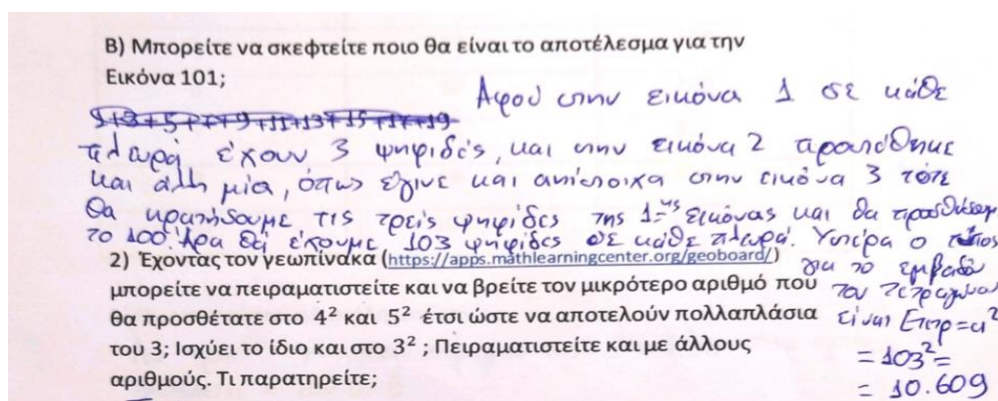 Β) Μπορείτε να σκεφτείτε ποιο θα είναι το αποτέλεσμα για την
Εικόνα 101;
Αφού στην εικόνα 1 σε κάθε
1+3+5+7+9+11+13+15+17+19
πλευρά έχουν 3 ψηφίδες, και στην εικόνα 2 προστέθηκε
και άλλη μία, όπως έγινε και αντίστοιχα στην εικόνα 3 τότε
θα κρατήσουμε τις τρείς ψηφίδες της 1ης εικόνας και θα προσθέσουμε
το 100. Άρα θα έχουμε 103 ψηφίδες σε κάθε πλευρά. Ύστερα ο τύπος
για το εμβαδό
του τετραγώνου
είναι Ετετρ=α²
= 103²=
= 10.609
2) Έχοντας τον γεωπίνακα (https://apps.mathlearningcenter.org/geoboard/)
μπορείτε να πειραματιστείτε και να βρείτε τον μικρότερο αριθμό που
θα προσθέτατε στο 4² και 5² έτσι ώστε να αποτελούν πολλαπλάσια
του 3; Ισχύει το ίδιο και στο 3² ; Πειραματιστείτε και με άλλους
αριθμούς. Τι παρατηρείτε;